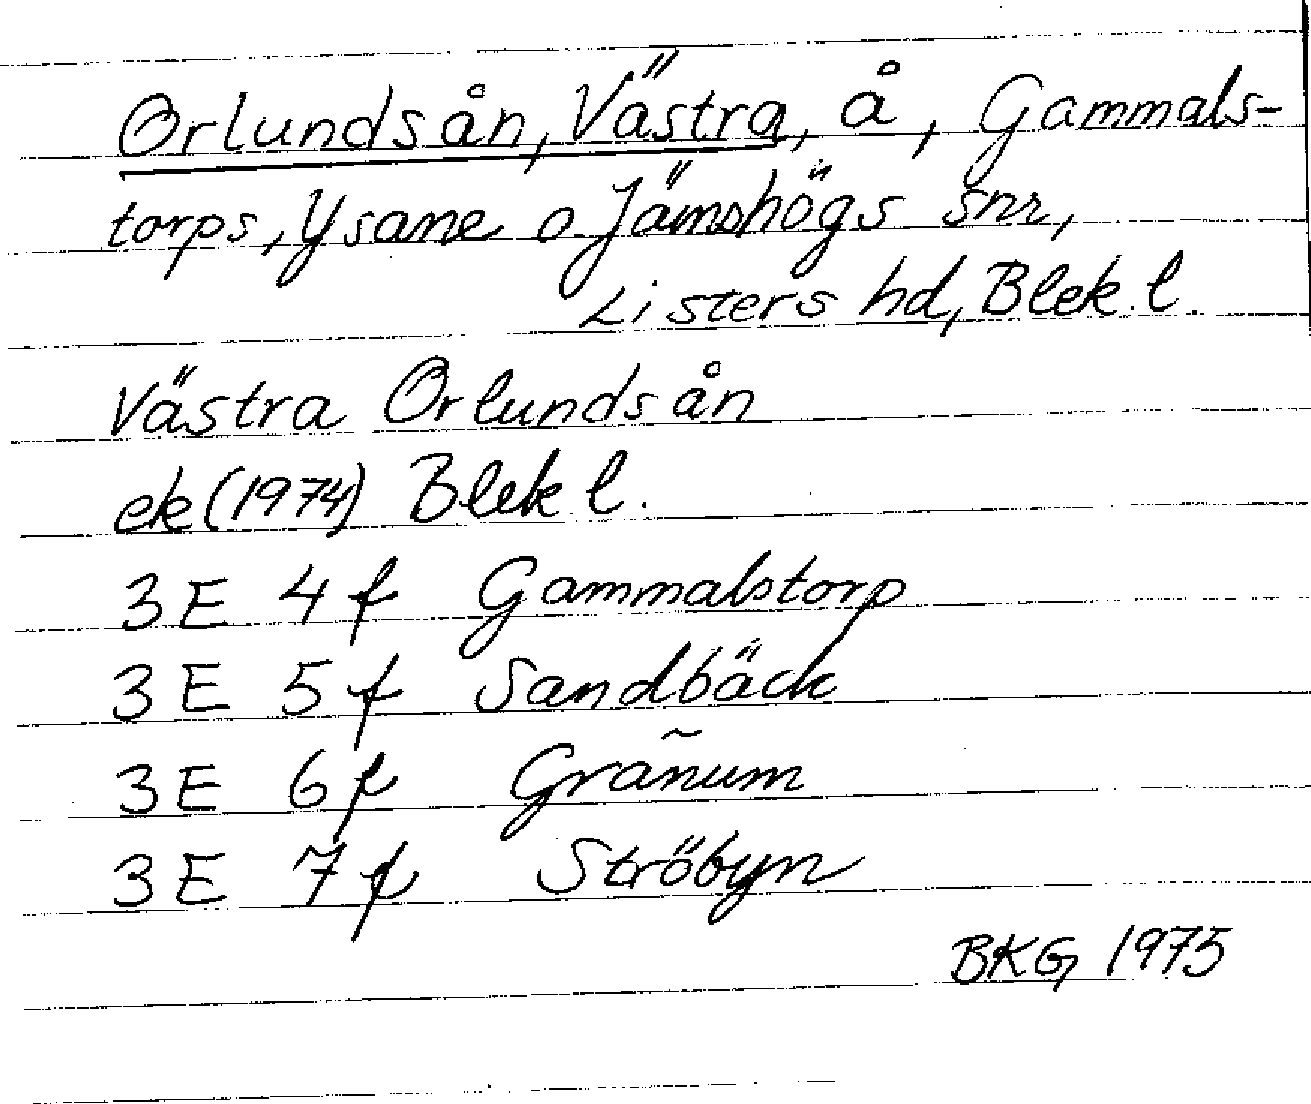 Orlundsån, Västra, å, Gammals-
torps, Ysane o. Jämshögs snr,
Listers hd, Blek. l.
Västra Orlundsån
ek (1974) Blek l.
3E 4f Gammalstorp
3E 5f Sandbäck
3E 6f Granum
3E 7f Ströbyn
BKG 1975